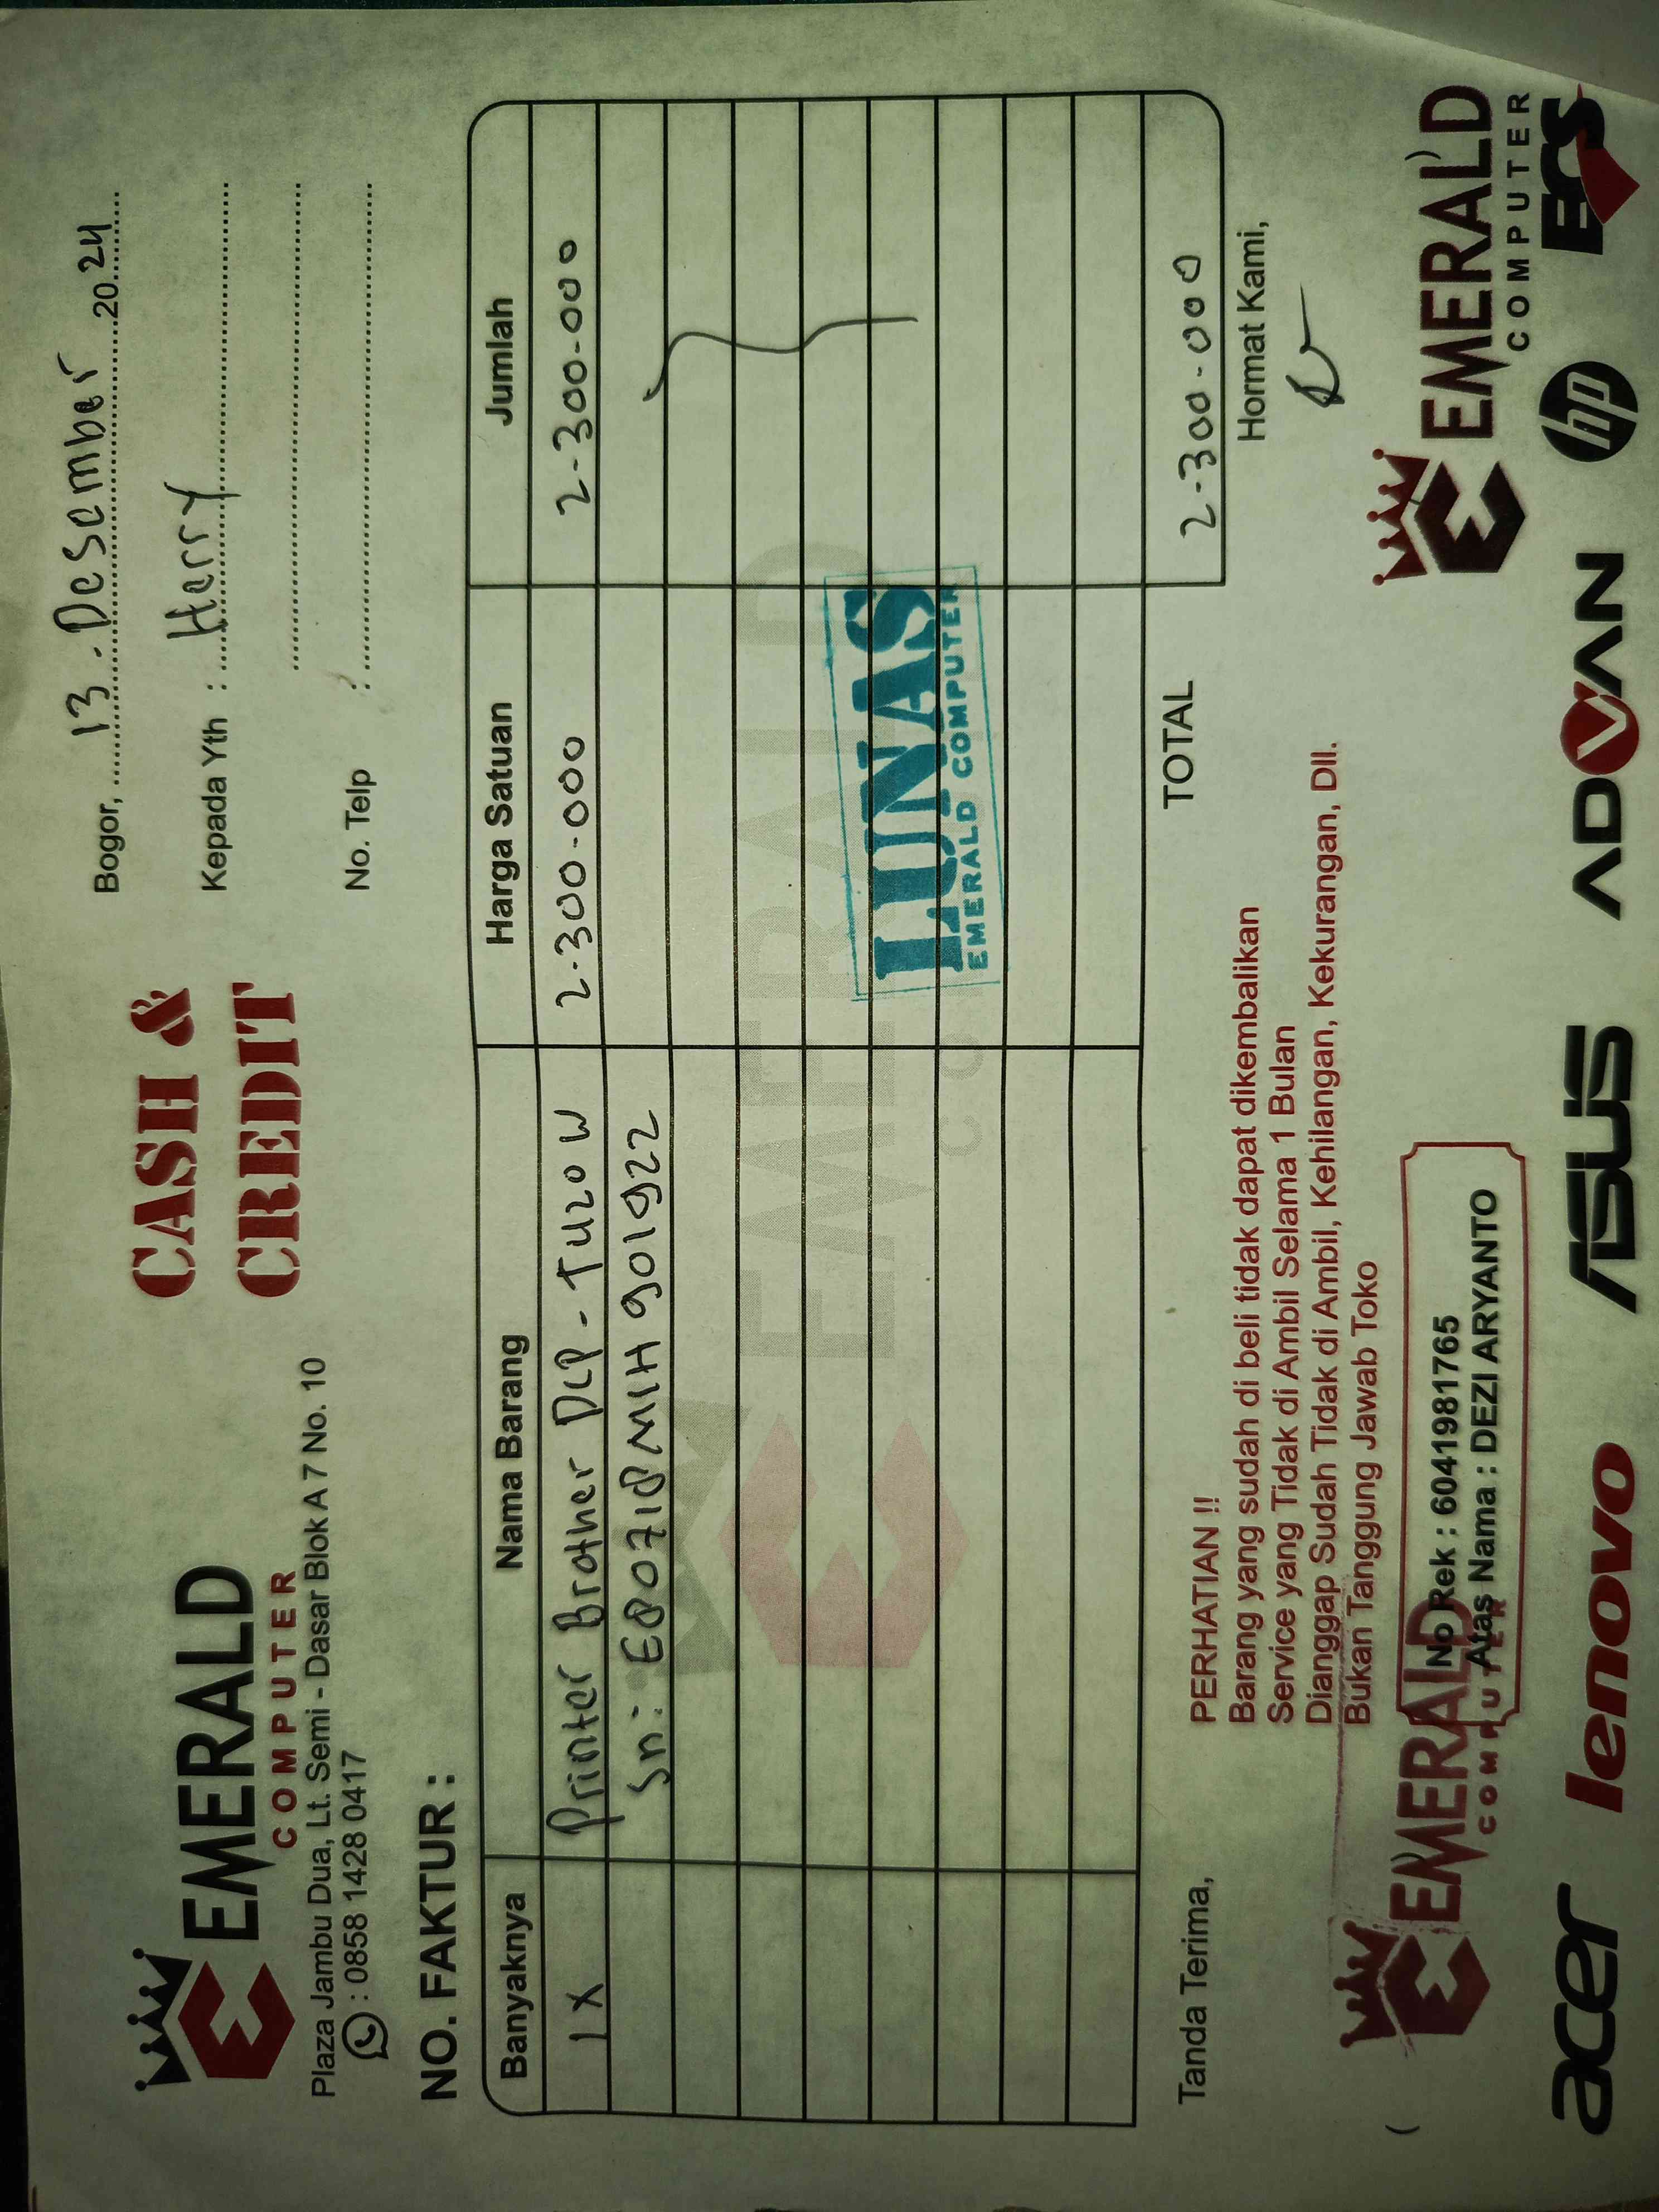 EMERALD
COMPUTER
Plaza Jambu Dua, Lt. Semi - Dasar Blok A 7 No. 10
: 0858 1428 0417
CASH &
CREDIT
Bogor, 13 - Desember 2024
Kepada Yth : Herry
No. Telp :
NO. FAKTUR :
Banyaknya Nama Barang Harga Satuan Jumlah
1 X Printer Brother DCP - T420 W 2-300-000 2-300-000
Sn: E80718M1H901922
EMERALD
LUNAS
EMERALD COMPUTER
TOTAL 2-300-000
Tanda Terima,
Hormat Kami,
PERHATIAN !!
Barang yang sudah di beli tidak dapat dikembalikan
Service yang Tidak di Ambil Selama 1 Bulan
Dianggap Sudah Tidak di Ambil, Kehilangan, Kekurangan, Dll.
Bukan Tanggung Jawab Toko
EMERALD
COMPUTER
No Rek : 6041981765
Atas Nama : DEZI ARYANTO
EMERALD
COMPUTER
acer lenovo ASUS ADVAN hp ECS